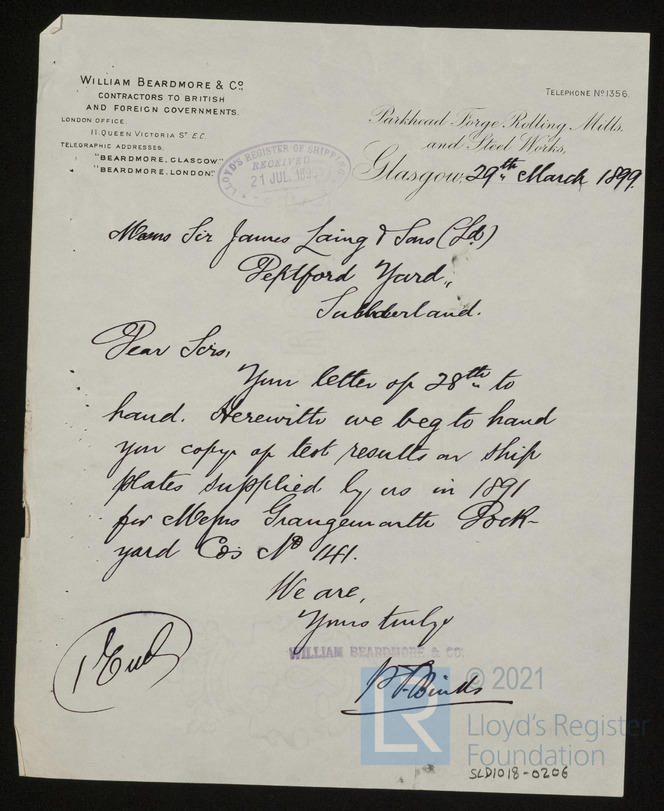 WILLIAM BEARDMORE & Co
CONTRACTORS TO BRITISH
AND FOREIGN GOVERNMENTS.
LONDON OFFICE.
11. QUEEN VICTORIA ST E.C.
TELEGRAPHIC ADDRESSES.
"BEARDMORE, GLASGOW."
"BEARDMORE, LONDON."
TELEPHONE No 1356.
Parkhead Forge Rolling Mills.
and Steel Works,
Glasgow, 29th March 1899.
LLOYD'S REGISTER OF SHIPPING
RECEIVED
21 JUL
Messrs Sir James Laing & Sons (Ld)
Deptford Yard,,
Sunderland.
Dear Sirs,
Your letter of 28th to
hand. Herewith we beg to hand
you copy of test results on ship
plates supplied by us in 1891
for Messrs Grangemouth Dock-
yard Co's No 141.
We are,
Yours truly
WILLIAM BEARDMORE & CO.
1 Encl
© 2021
LR
Lloyd's Register
Foundation
SLD1018-0206